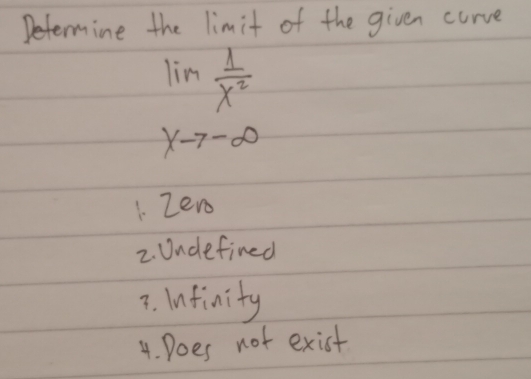 Determine the limit of the given curve
lim 1/x²
x→-∞
1. Zero
2. Undefined
3. Infinity
4. Does not exist